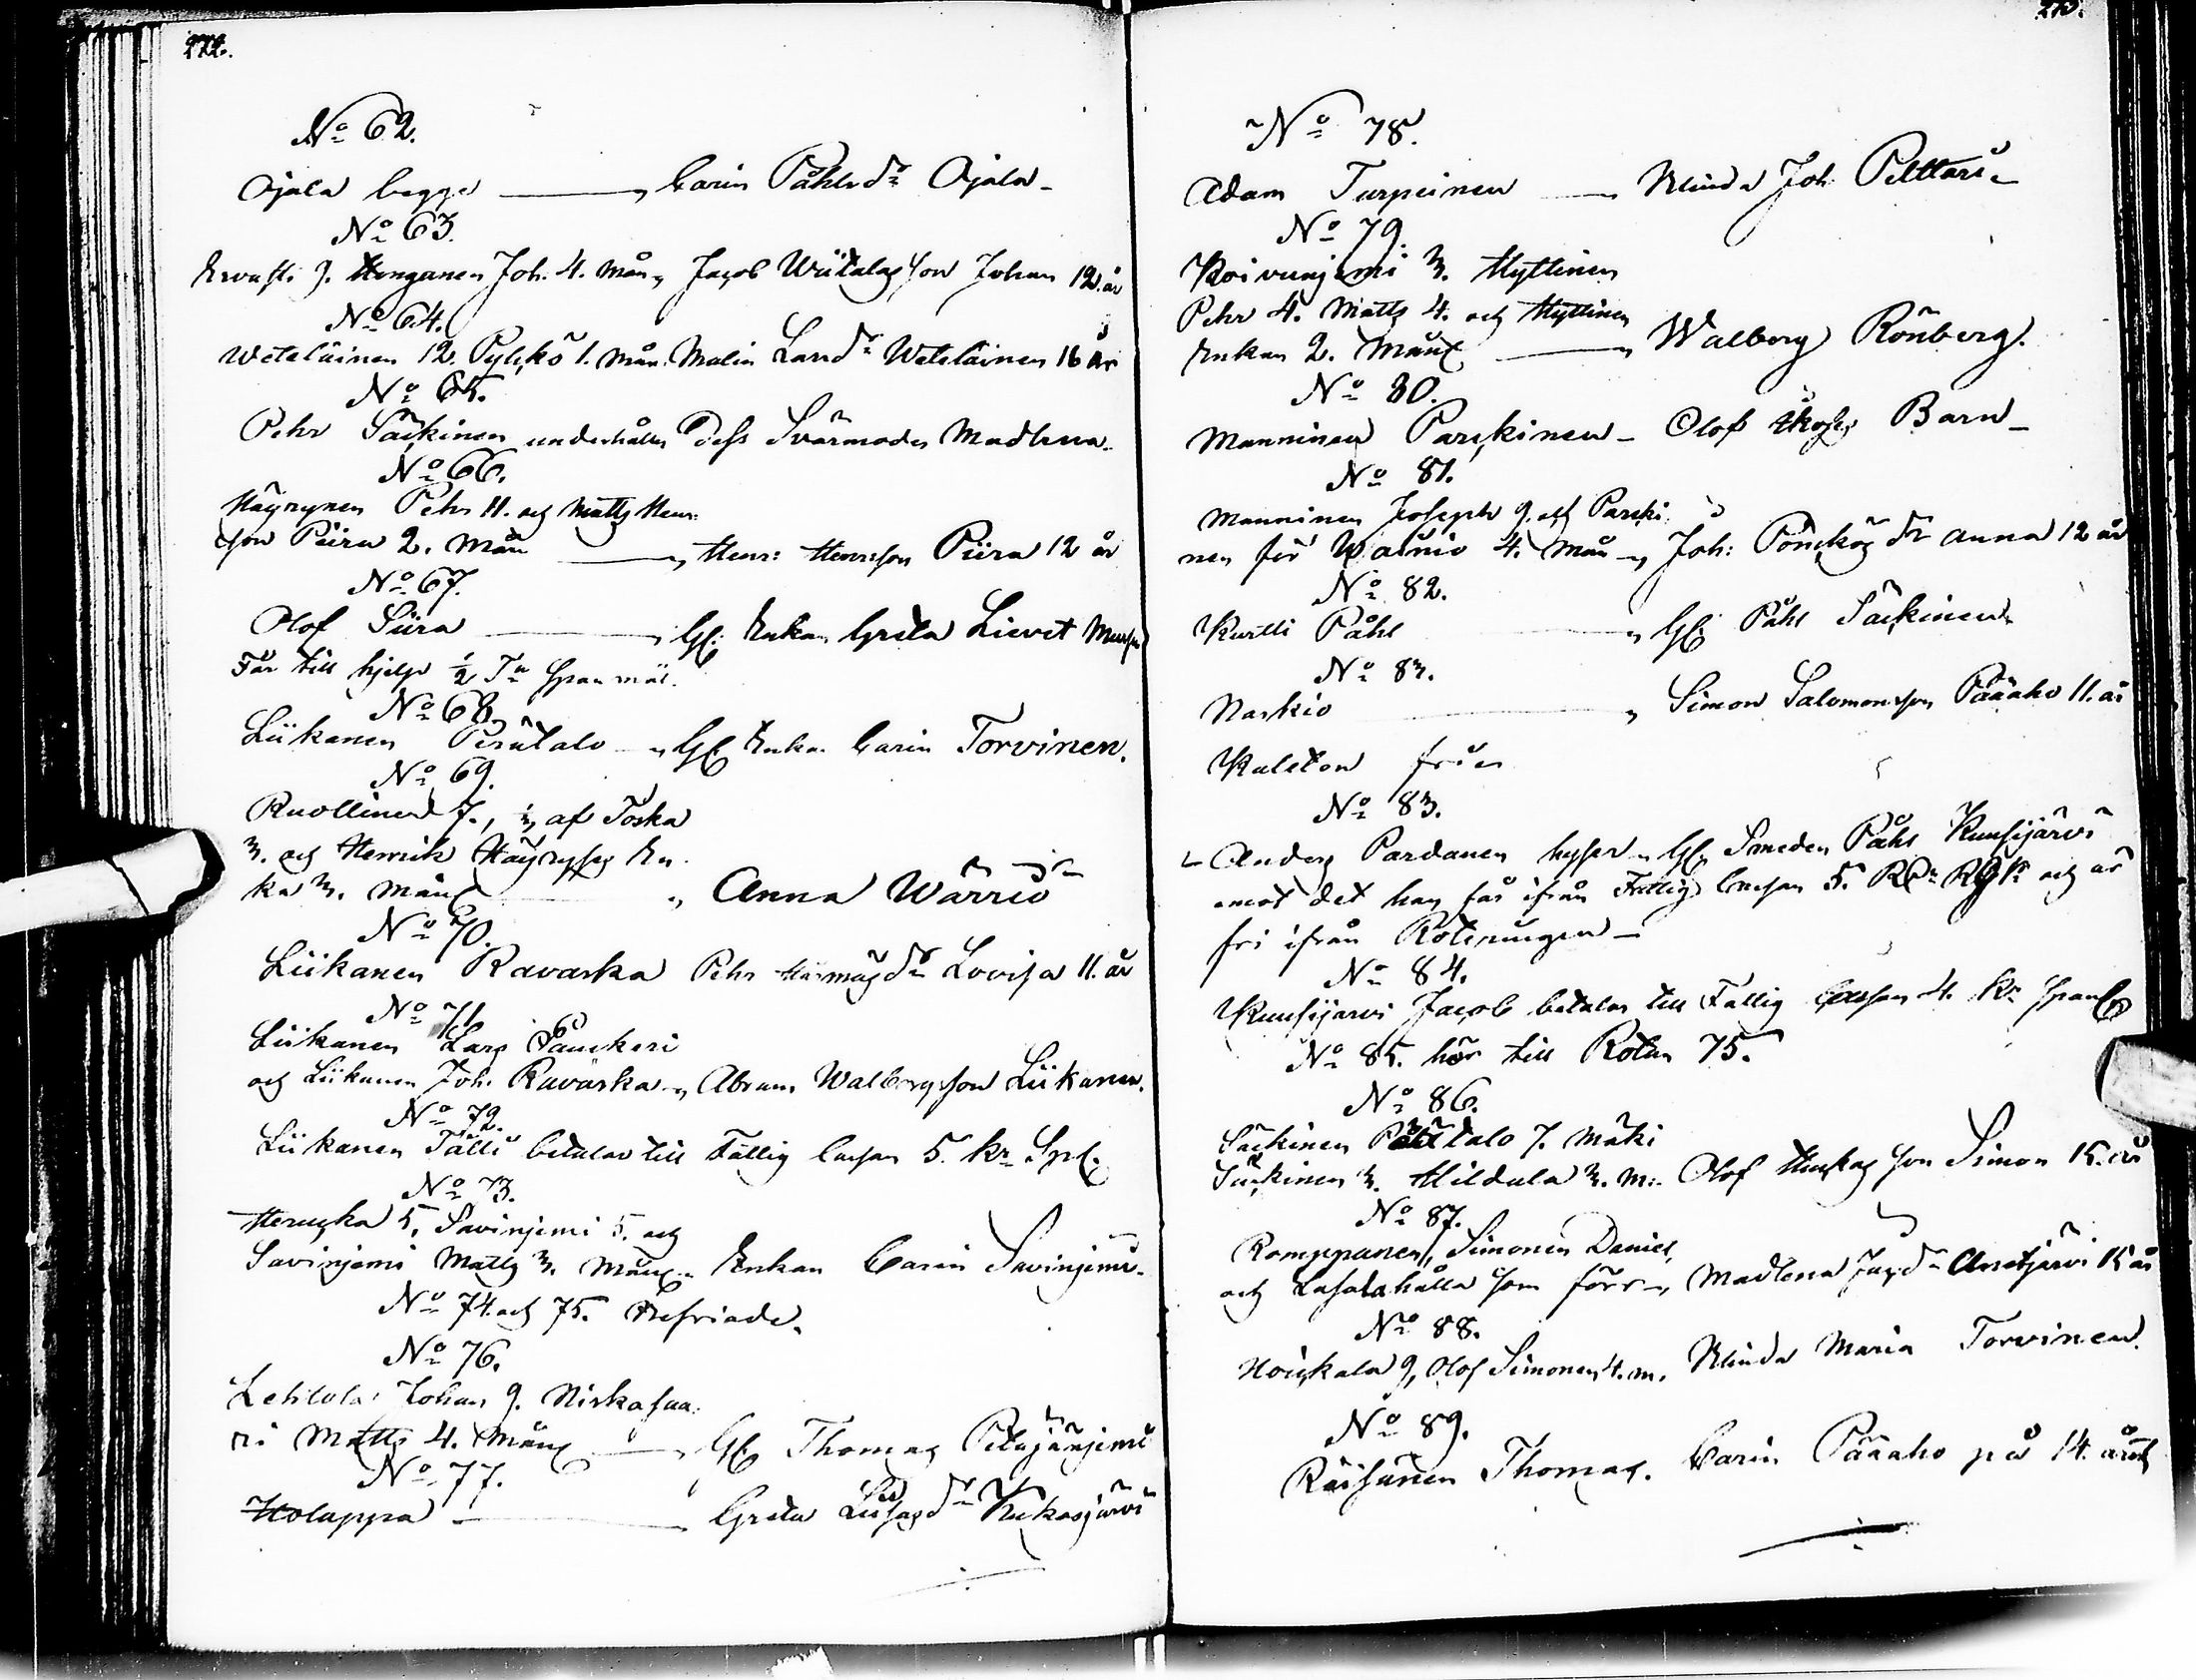 272.
No 62.
Ojala begge — Carin Påhlsdr Ojala
No 63.
Ervasti 9. Hanganen Joh. 4. mån, Jacob Wiitalas son Johan 12. år
No 64.
Weteläinen 12. Pyhkö 1. mån. Malin Larsdr Weteläinen 16 år
No 65.
Pehr Säckinen underhåller Dess Svärmoder Madlena.
No 66.
Häyrynen Pehr 11. och Matts Henr:
son Piira 2. mån — Henr: Henrsson Piira 12 år
No 67.
Olof Siira — Gl: Enkan Greta Lievet
Får till hjelp ½ Tn Spanmål.
No 68.
Liikanen Perätalo — Gl: Enka Carin Torvinen.
No 69.
Ruottinen 7., ½ af Toska
3. och Henrik Häyrysses En
ka 3. mån — Anna Wärriö
No 70.
Liikanen Ravaska Pehr dr Lovisa 11. år
No 71.
Liikanen Lars Pauckeri
och Liikanen Joh. Ravaska, Abram Walborgsson Liikanen.
No 72.
Liikanen Tälli betalar till Fattig Cassan 5. kr Spl.
No 73.
Heruska 5, Savinjemi 5. och
Savinjemi Matts 3. mån. Enkan Carin Savinjemi.
No 74. och 75. Befriade.
No 76.
Lehtola Johan 9. Niskasaa:
ri Matts 4. mån — Gl: Thomas Petäjänjemi
No 77.
Holappa — Greta Liisasdr Kukasjärvi
273.
No 78.
Adam Turpeinen — Blinda Joh. Pelttari
No 79.
Koivunjemi 3. Hyttinen
Pehr 4. Matts 4. och Hyttinen
Enkan 2. mån — Walborg Rönberg.
No 80.
Manninen Parckinen — Olof Barn
No 81.
Manninen Joseph 9. och Parcki
nen för Wainio 4. mån — Joh: Pönckös dr Anna 12 år
No 82.
Kurtti Påhl — Gl: Påhl Säckinen
No 83.
Naskio — Simon Salomonsson Pääaho 11. år
Kuleton fri
No 83.
Anders Pardanen hyser Gl: Smeden Påhl Kuusijärvi
emot det han får ifrån Fattig Cassan 5. Rbr och är
fri ifrån Roteringen —
No 84.
Kuusijärvi Jacob betalar till Fattig Cassan 4. kr Spanl:
No 85. hör till Rotan 75.
No 86.
Säckinen talo 7. Mäki
Säckinen 3. Hildula 3. m: Olof son Simon 15. år
No 87.
Romppanen, Simonen Daniel,
och Lasala hålla som förr — Madlena Jacdr Anetjärvi 15 år
No 88.
Hoickala 9, Olof Simonen 4. m. Blinda Maria Torvinen.
No 89.
Räisänen Thomas. Carin Pääaho på 14. året